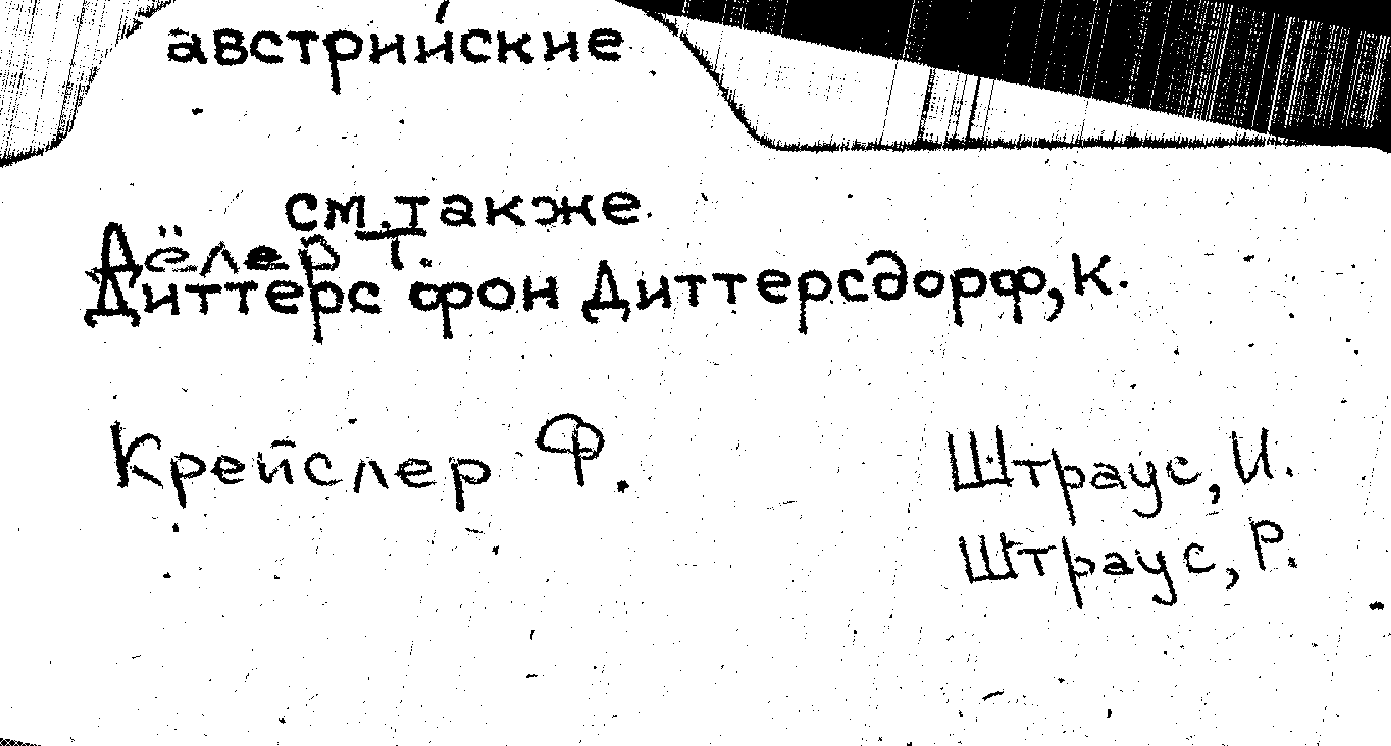 австрийские
см. также
Дёлер Т.
Диттерс фон Диттерсдорф, К.
Крейслер Ф.
Штраус, И.
Штраус, Р.